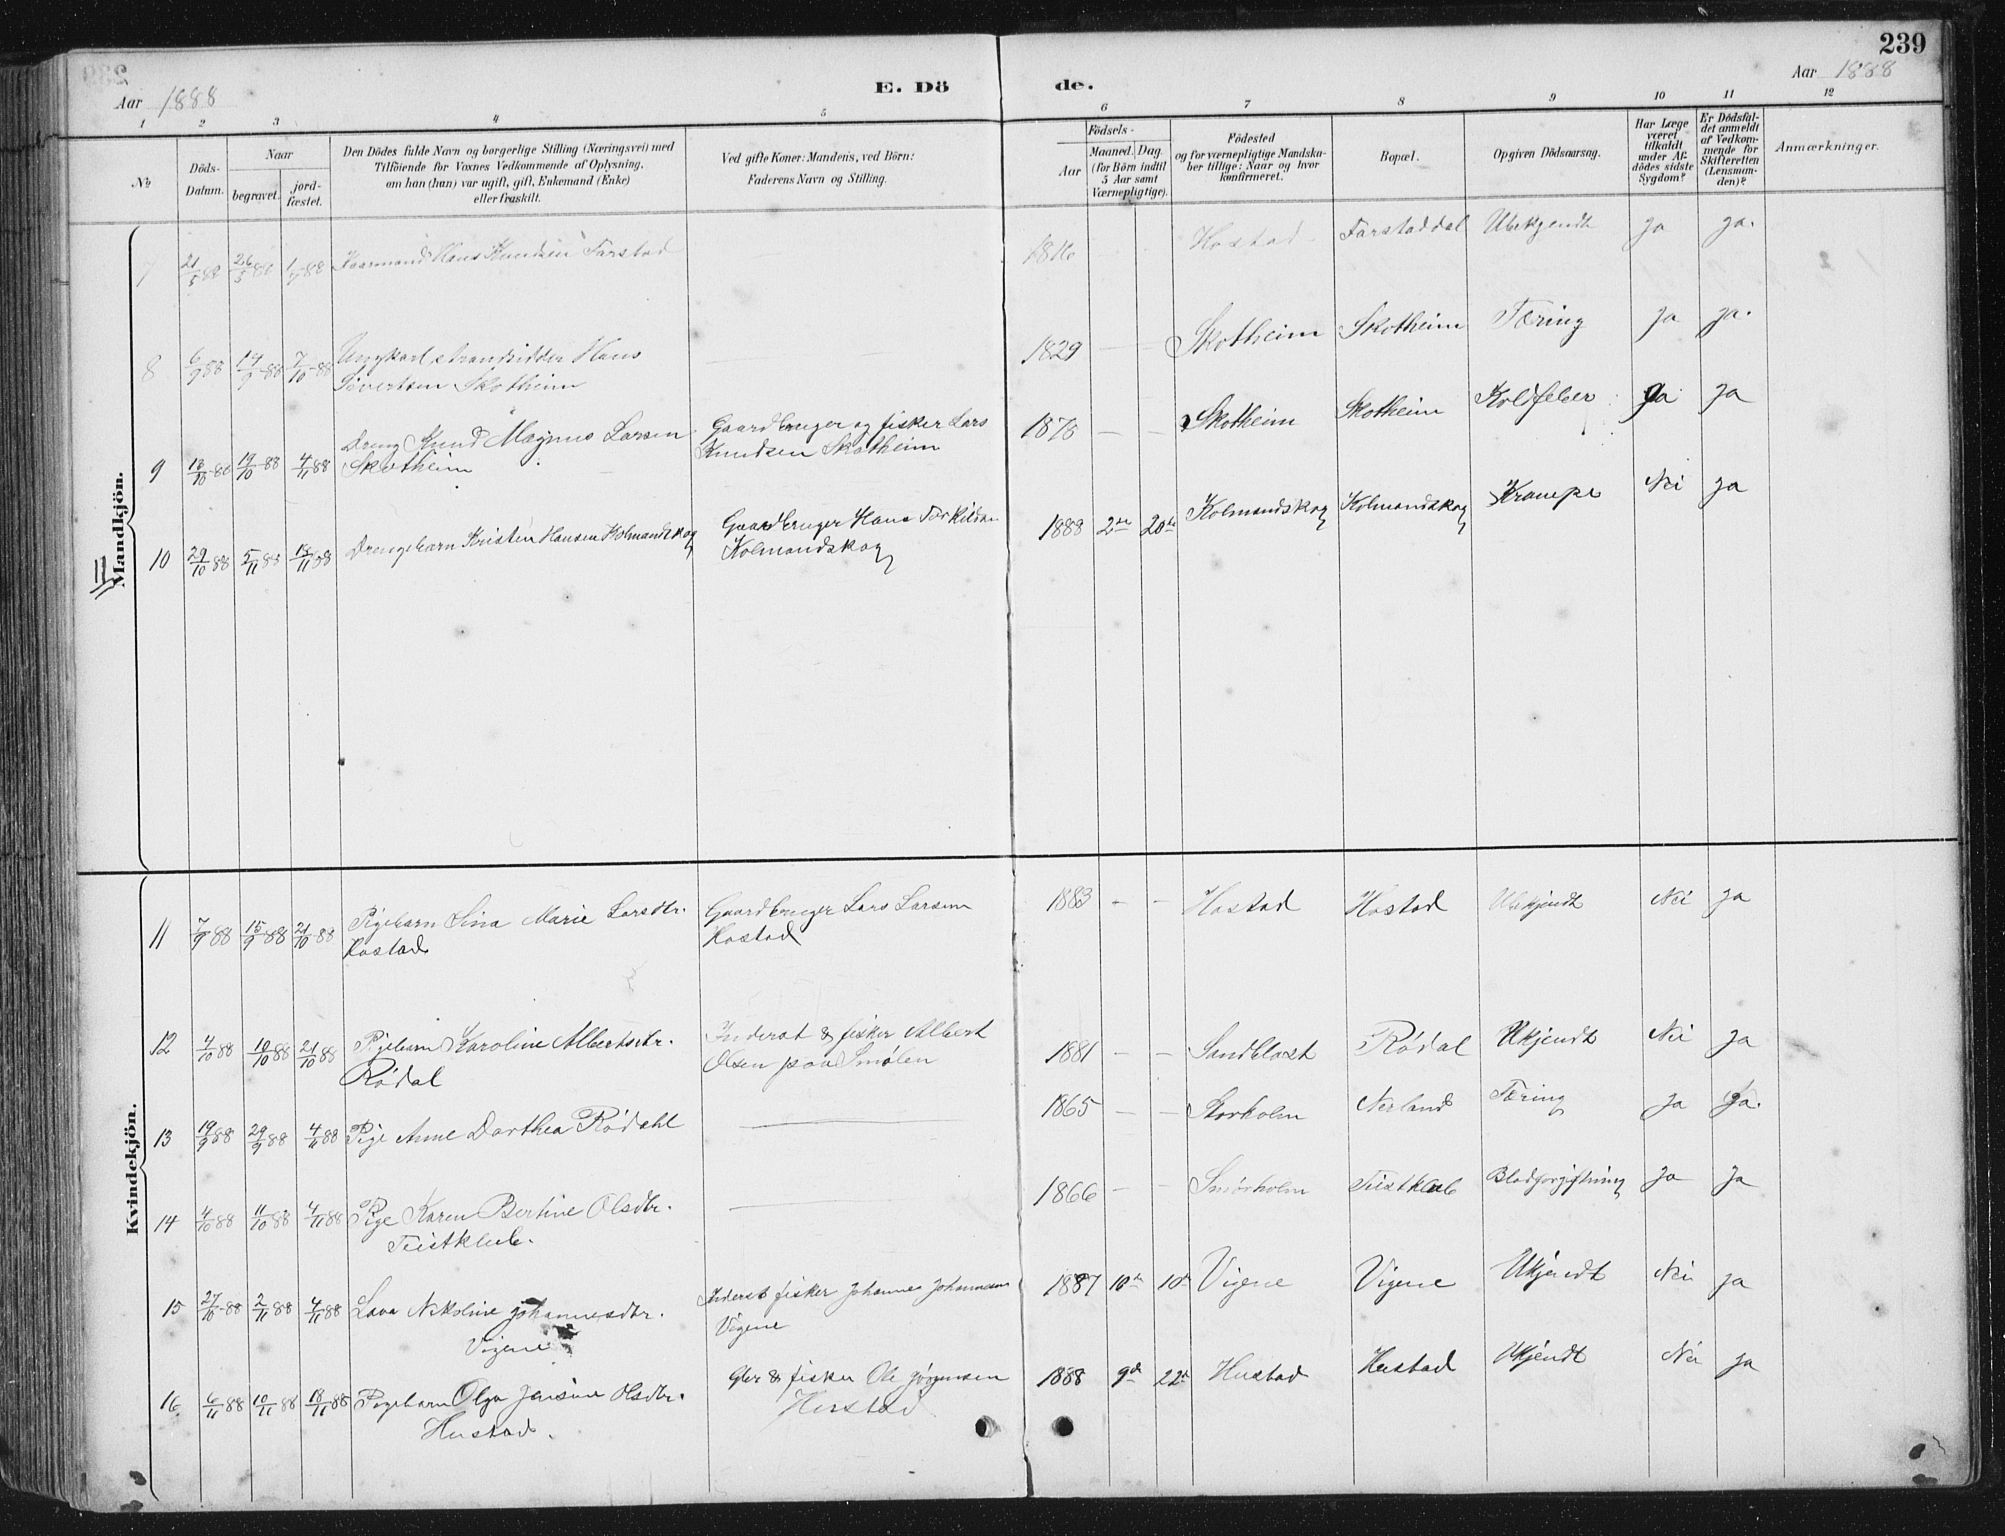 239
Aar 1888
E. Dö
de.
Aar 1888
1 2 3 4 5 6 7 8 9 10 11 12
No
Döds-
Datum.
Naar
begravet.
jord-
fæstet.
Den Dödes fulde Navn og borgerlige Stilling (Næringsvei) med
Tilföiende for Voxnes Vedkommende af Oplysning,
om han (hun) var ugift, gift, Enkemand (Enke)
eller fraskilt.
Ved gifte Koner: Mandens, ved Börn:
Faderens Navn og Stilling.
Födsels-
Aar
Maaned. Dag
(for Börn indtil
5 Aar samt
Værnepligtige).
Födested
og for værnepligtige Mandska-
ber tillige: Naar og hvor
konfirmeret.
Bopæl.
Opgiven Dödsaarsag.
Har Læge
været
tilkaldt
under Af-
dödes sidste
Sygdom?
Er Dödsfal-
det anmeldt
af Vedkom-
mende for
Skifteretten
(Lensman-
den)?
Anmærkninger.
Mandkjön.
7 21/5 88 26/5 88 1/7 88 Kaarmand Hans Knudsen Farstad 1816 Hostad Farstaddal Ubekjendt ja ja.
8 6/9 88 14/9 88 7/10 88 Ungkarl strandsidder Hans
Sivertsen Skotheim 1829 — — Skotheim Skotheim Tæring ja ja.
9 13/10 88 19/10 88 4/11 88 Dreng Knud Magnus Larsen
Skotheim Gaardbruger og fisker Lars
Knudsen Skotheim 1878 — — Skotheim Skotheim Koldfeber ja ja
10 29/10 88 5/11 88 18/11 88 Drengebarn Kristen Hansen Kolmandskog Gaardbruger Hans Torkildsen
Kolmandskog 1888 2de 20de Kolmandskog Kolmandskog Krampe Nei ja
Kvindekjön.
11 7/9 88 15/9 88 21/10 88 Pigebarn Sina Marie Larsdtr.
Hostad Gaardbruger Lars Larsen
Hostad 1883 - - Hostad Hostad Ubekjendt Nei ja
12 4/10 88 10/10 88 21/10 88 Pigebarn Karoline Albertsdtr.
Rödal Inderst & fisker Albert
Olsen paa Smølen 1881 — — Sandblast Rödal Ukjendt Nei ja
13 19/9 88 29/9 88 4/11 88 Pige Anne Dorthea Rödahl 1865 — — Storholm Nerland Tæring ja ja.
14 4/10 88 11/10 88 4/11 88 Pige Karen Bertine Olsdtr.
Teistkleb. 1866 — — Smörholm Teistkleb Blodforgiftning ja ja
15 27/10 88 2/11 88 4/11 88 Lava Nikoline Johannesdtr.
Vigene Inderst fisker Johannes Johannesen
Vigene 1887 10de 10de Vigene Vigene Ukjendt Nei ja
16 6/11 88 10/11 88 18/11 88 Pigebarn Olga Jensine Olsdtr.
Hustad. Gbr & fisker Ole Jörgensen
Hustad 1888 9de 22de Hustad Hustad Ukjendt Nei ja